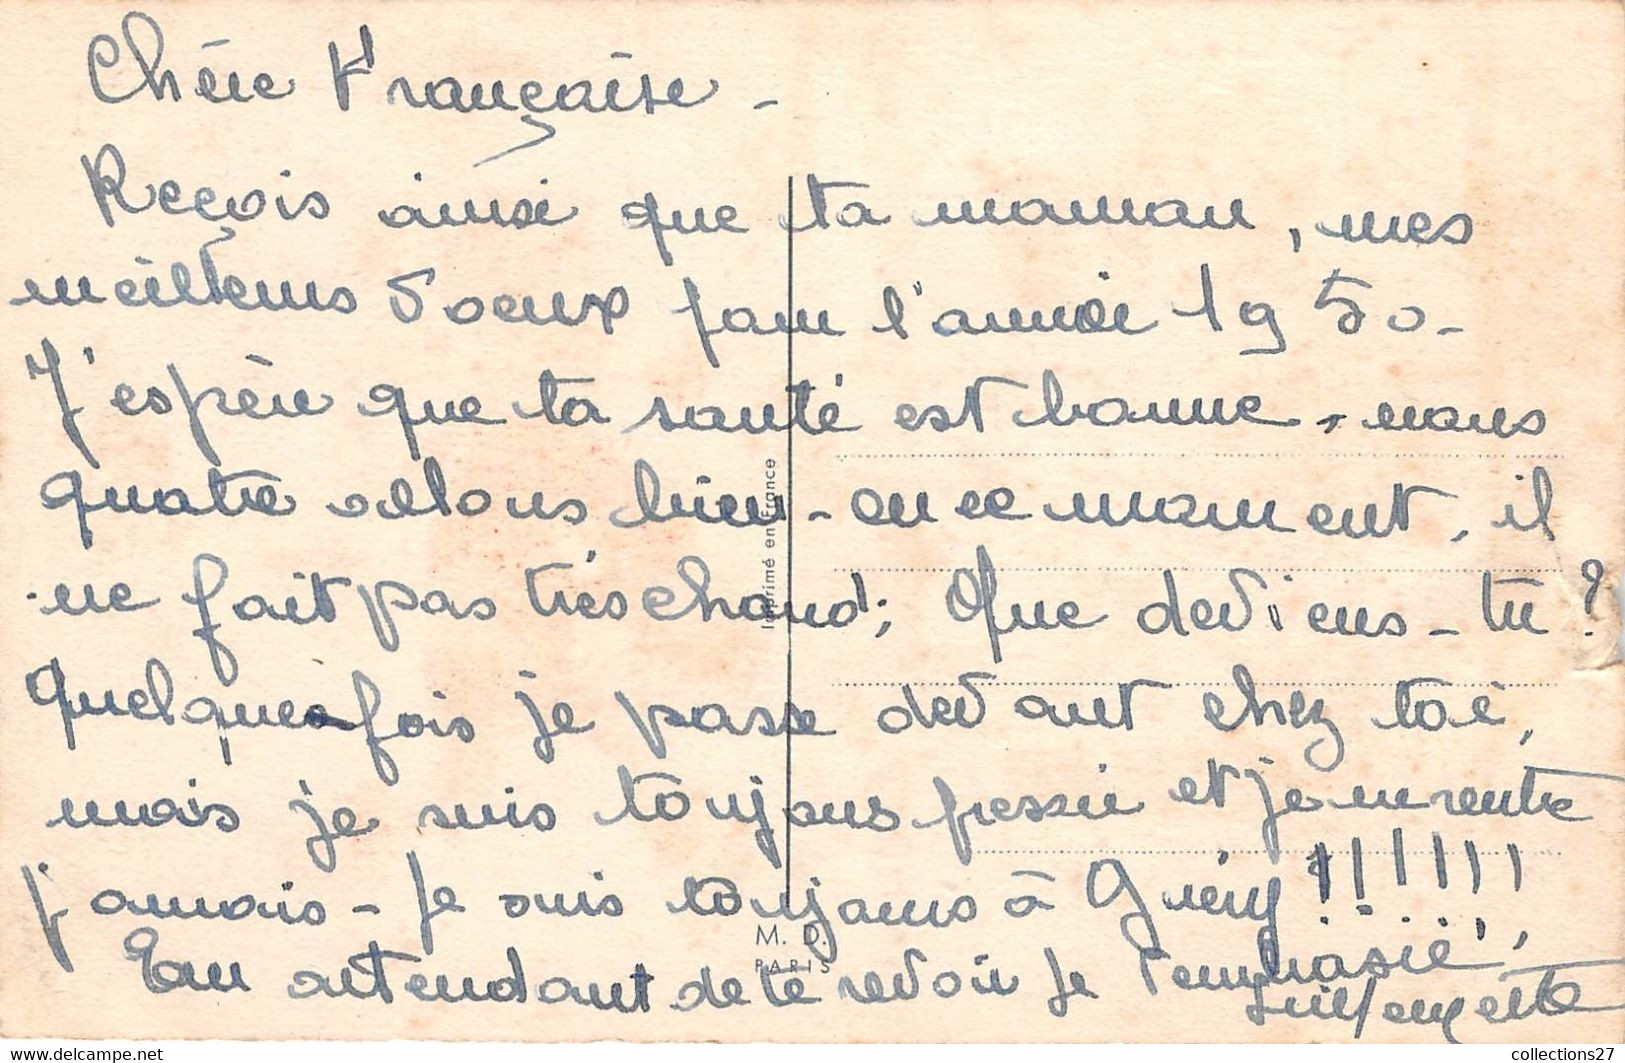 Chère Française -
Reçois ainsi que ta maman, mes
meilleurs voeux pour l'année 1950 -
J'espère que ta santé est bonne, nous
quatre allons bien - en ce moment, il
ne fait pas très chaud; Que deviens-tu?
Quelquefois je passe devant chez toi,
mais je suis toujours pressée et je ne rentre
jamais - Je suis toujours à !!!!!!
En attendant de te revoir je t'embrasse,
Imprimé en France
M. D.
PARIS
collections27